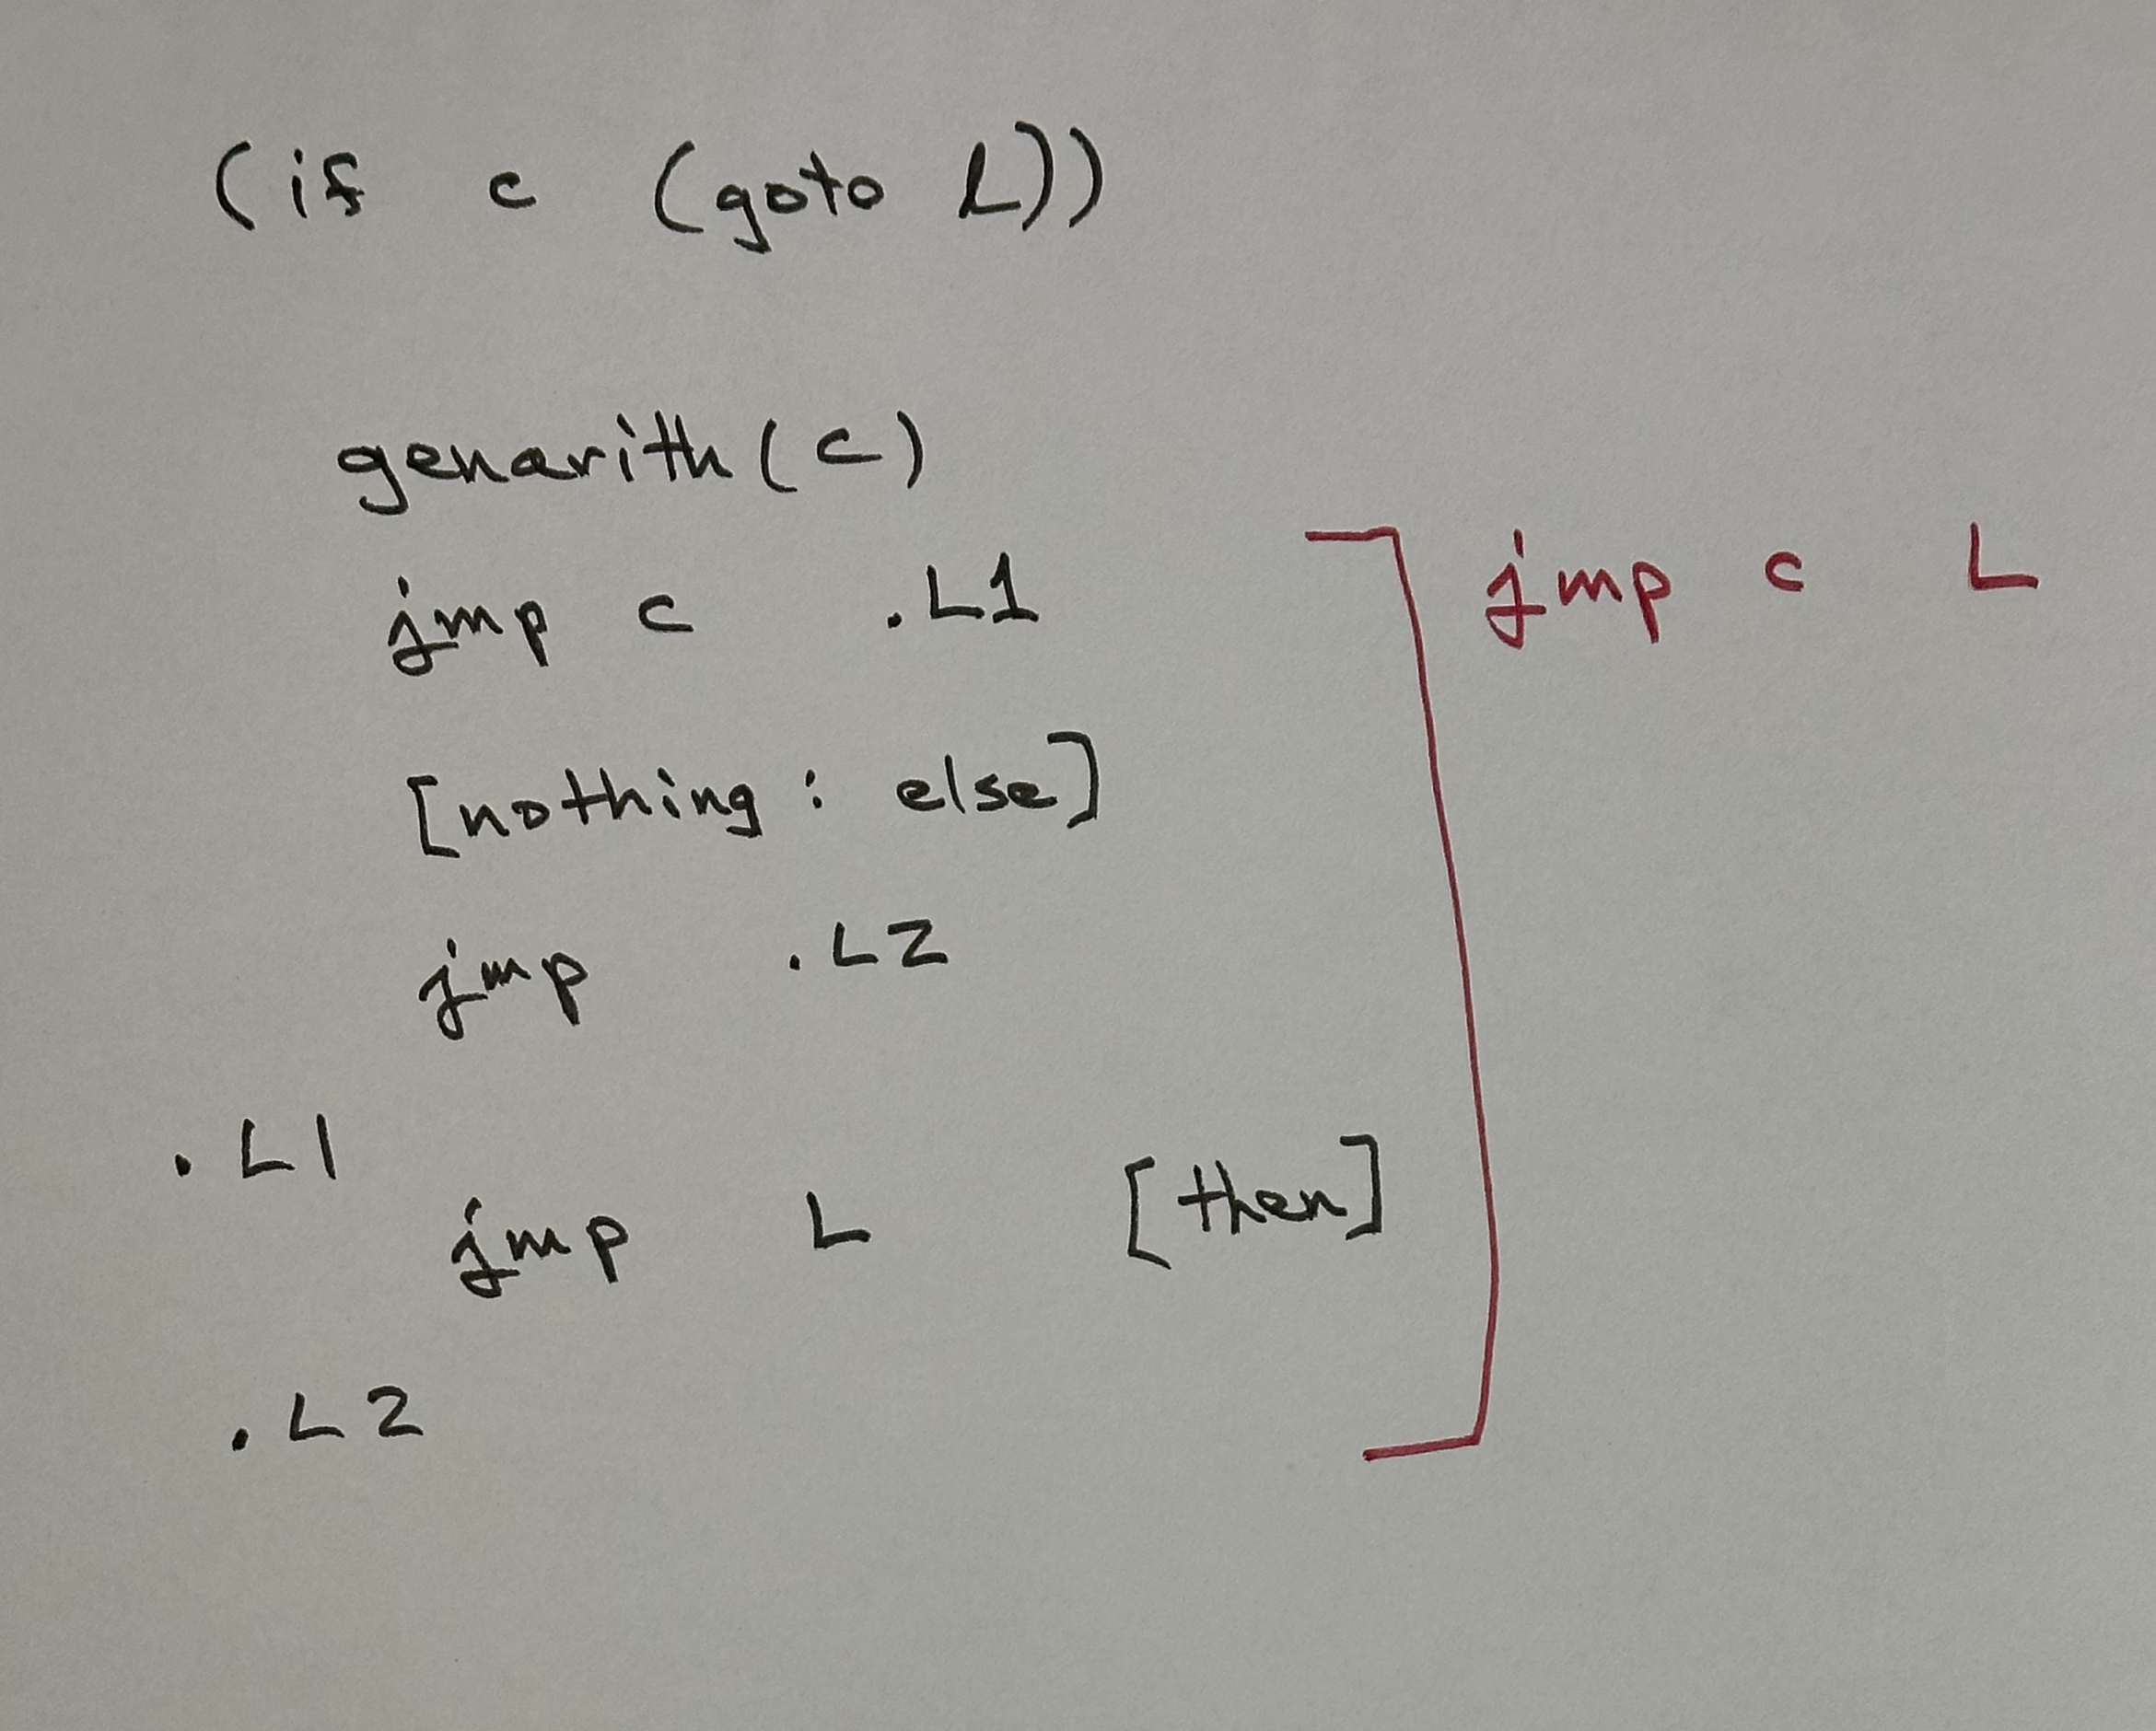 (if c (goto L))
genarith(c)
jmp c .L1
jmp c L
[nothing: else]
jmp .L2
.L1
jmp L [then]
.L2